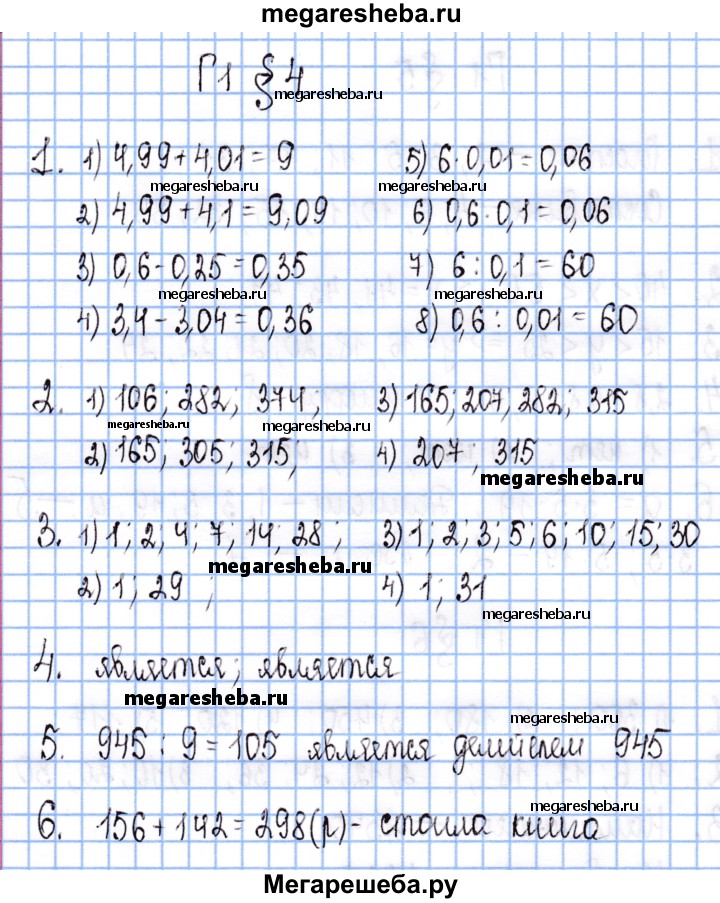 megaresheba.ru
Г1 § 4
megaresheba.ru
1. 1) 4,99+4,01=9 5) 6·0,01=0,06
megaresheba.ru megaresheba.ru
2) 4,99+4,1=9,09 6) 0,6·0,1=0,06
3) 0,6-0,25=0,35 7) 6:0,1=60
megaresheba.ru megaresheba.ru
4) 3,4-3,04=0,36 8) 0,6:0,01=60
2. 1) 106; 282; 374; 3) 165; 207, 282; 315
megaresheba.ru megaresheba.ru
2) 165; 305; 315; 4) 207; 315
megaresheba.ru
3. 1) 1; 2; 4; 7; 14; 28; 3) 1; 2; 3; 5; 6; 10; 15; 30
megaresheba.ru
2) 1; 29; 4) 1; 31
megaresheba.ru
4. является; является
megaresheba.ru
megaresheba.ru
5. 945:9=105 является делителем 945
megaresheba.ru
6. 156+142=298(р)- стоила книга
Мегарешеба.ру